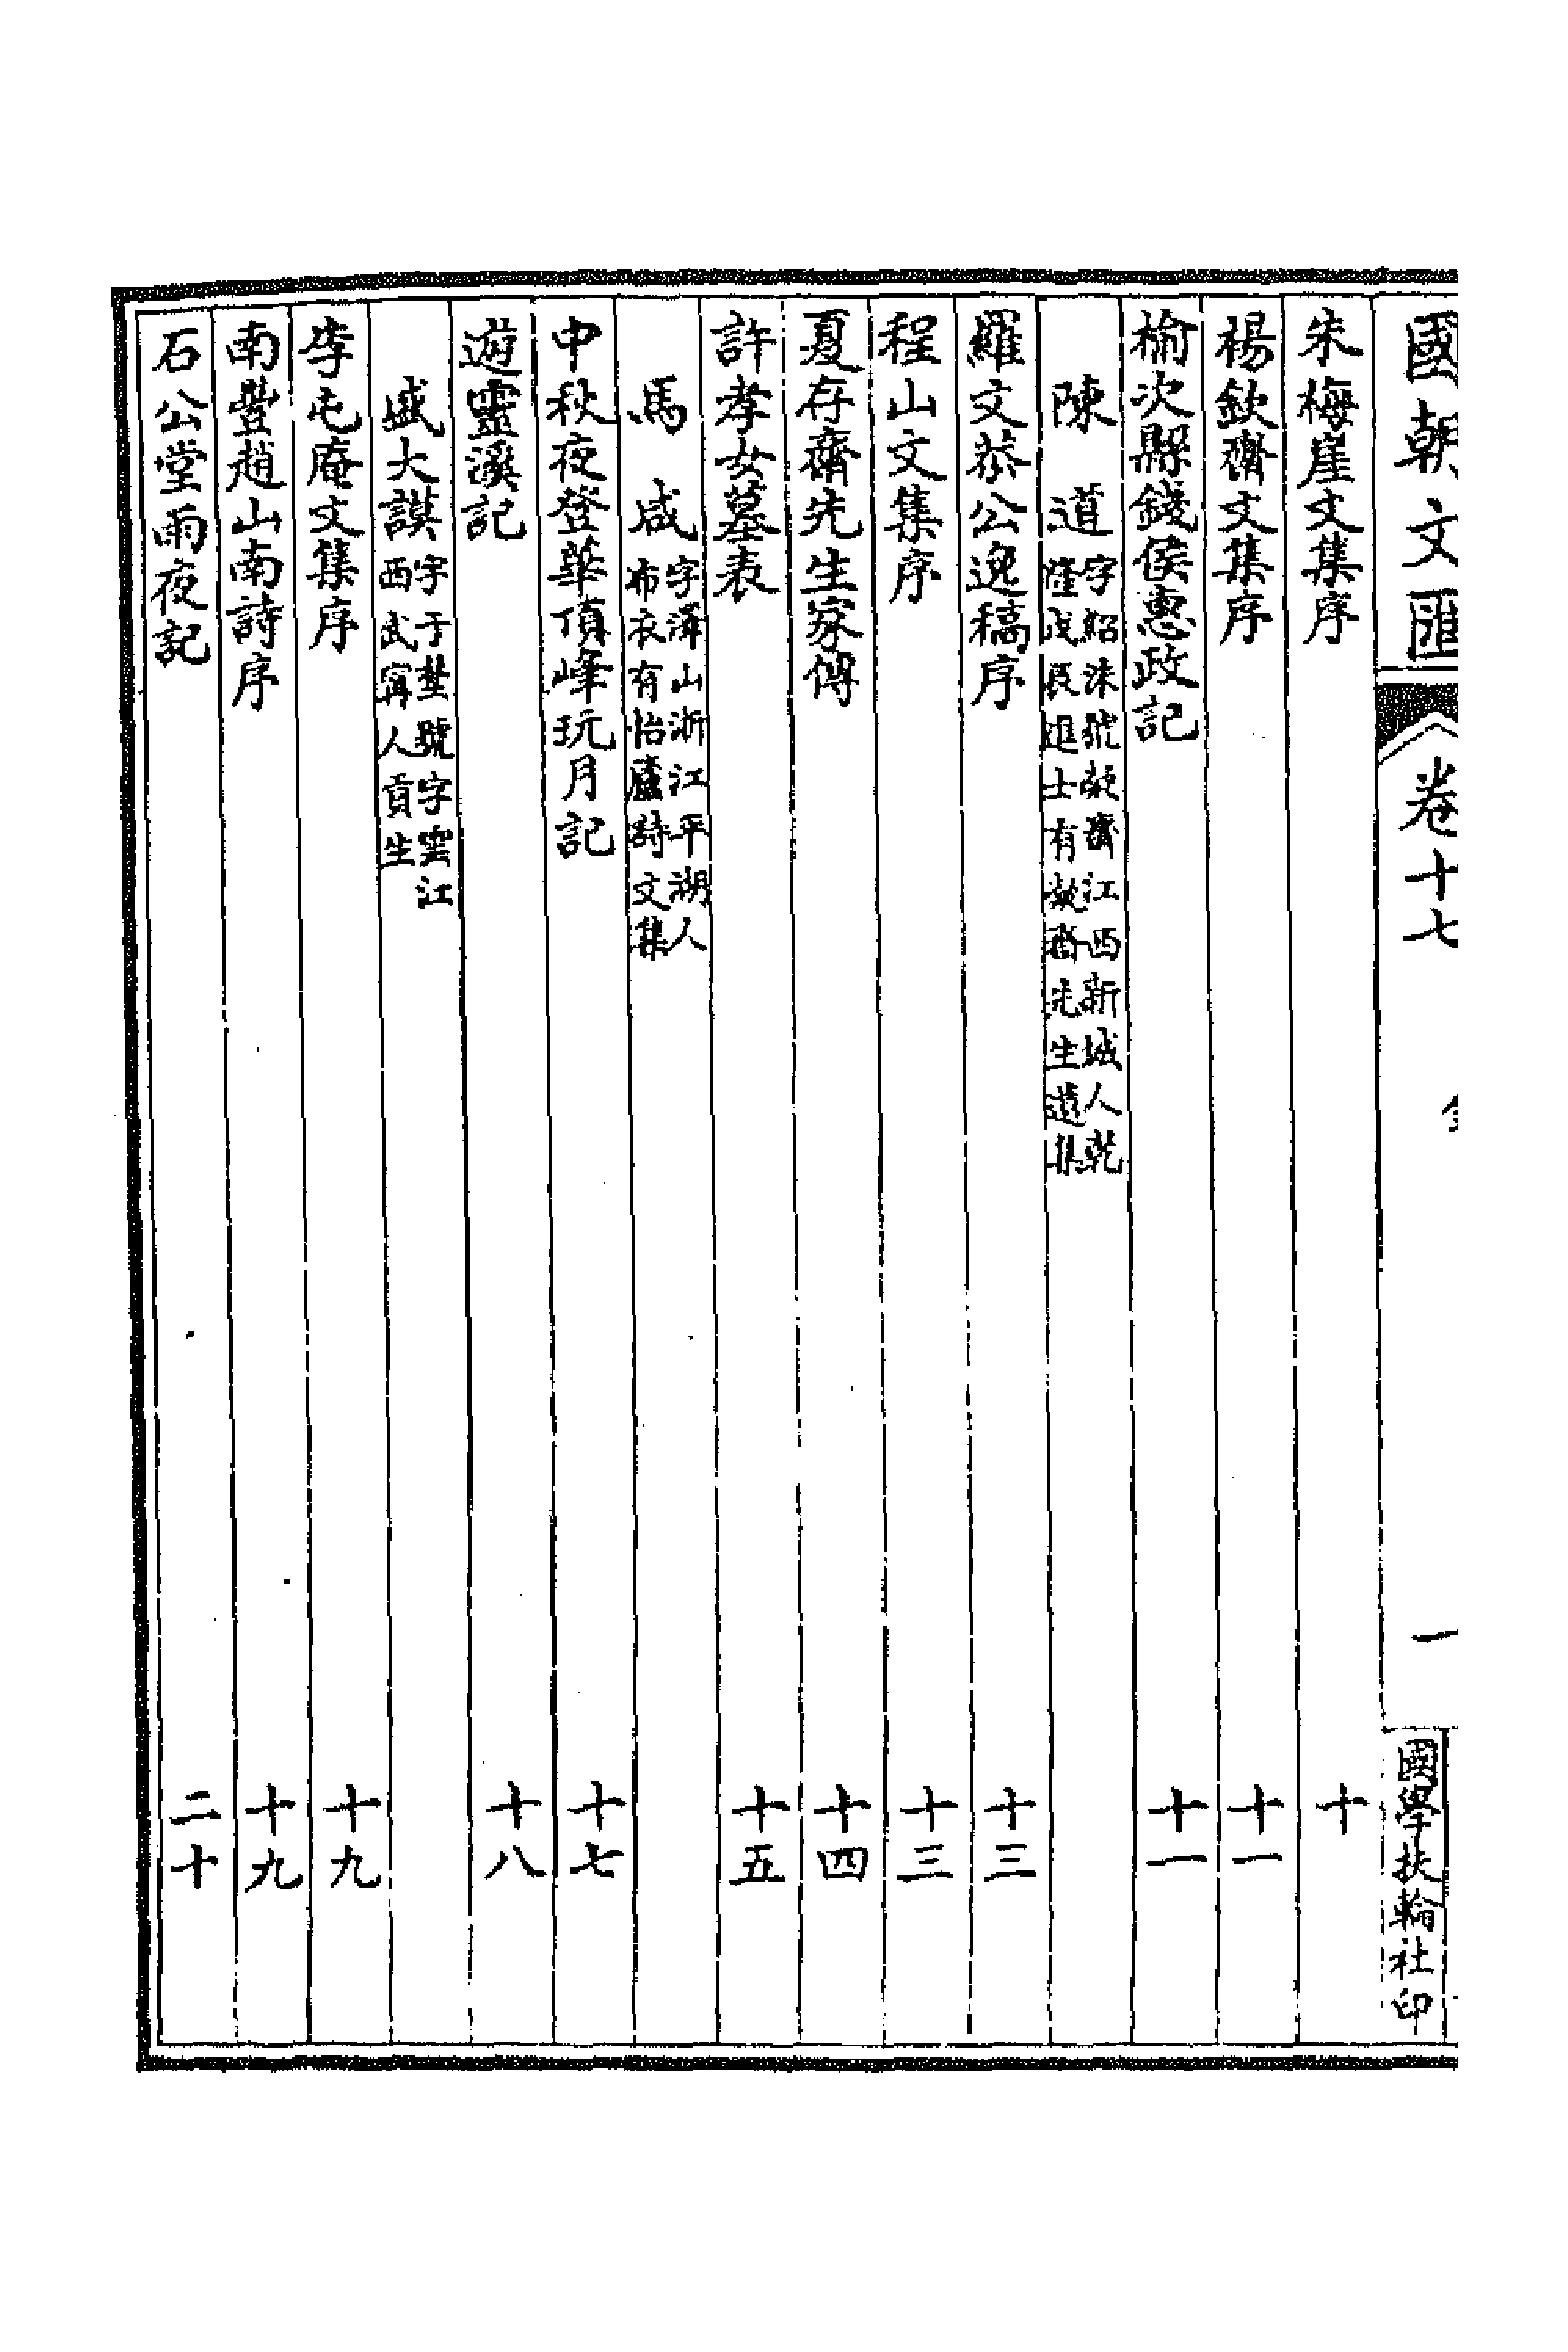 國朝文匯 卷十七 一 國學扶輪社印
朱梅崖文集序 十
楊欽齋文集序 十一
榆次縣錢侯惠政記 十一
陳道 字紹洙號凝齋江西新城人乾
隆戊辰進士有凝齋先生遺集
羅文恭公逸稿序 十三
程山文集序 十三
夏存齋先生家傳 十四
許孝女墓表 十五
馬咸 字澤山浙江平湖人
布衣有怡廬詩文集
中秋夜登華頂峰玩月記 十七
遊靈溪記 十八
盛大謨 字于埜號字雲江
西武寧人貢生
李屯庵文集序 十九
南豐趙山南詩序 十九
石公堂雨夜記 二十